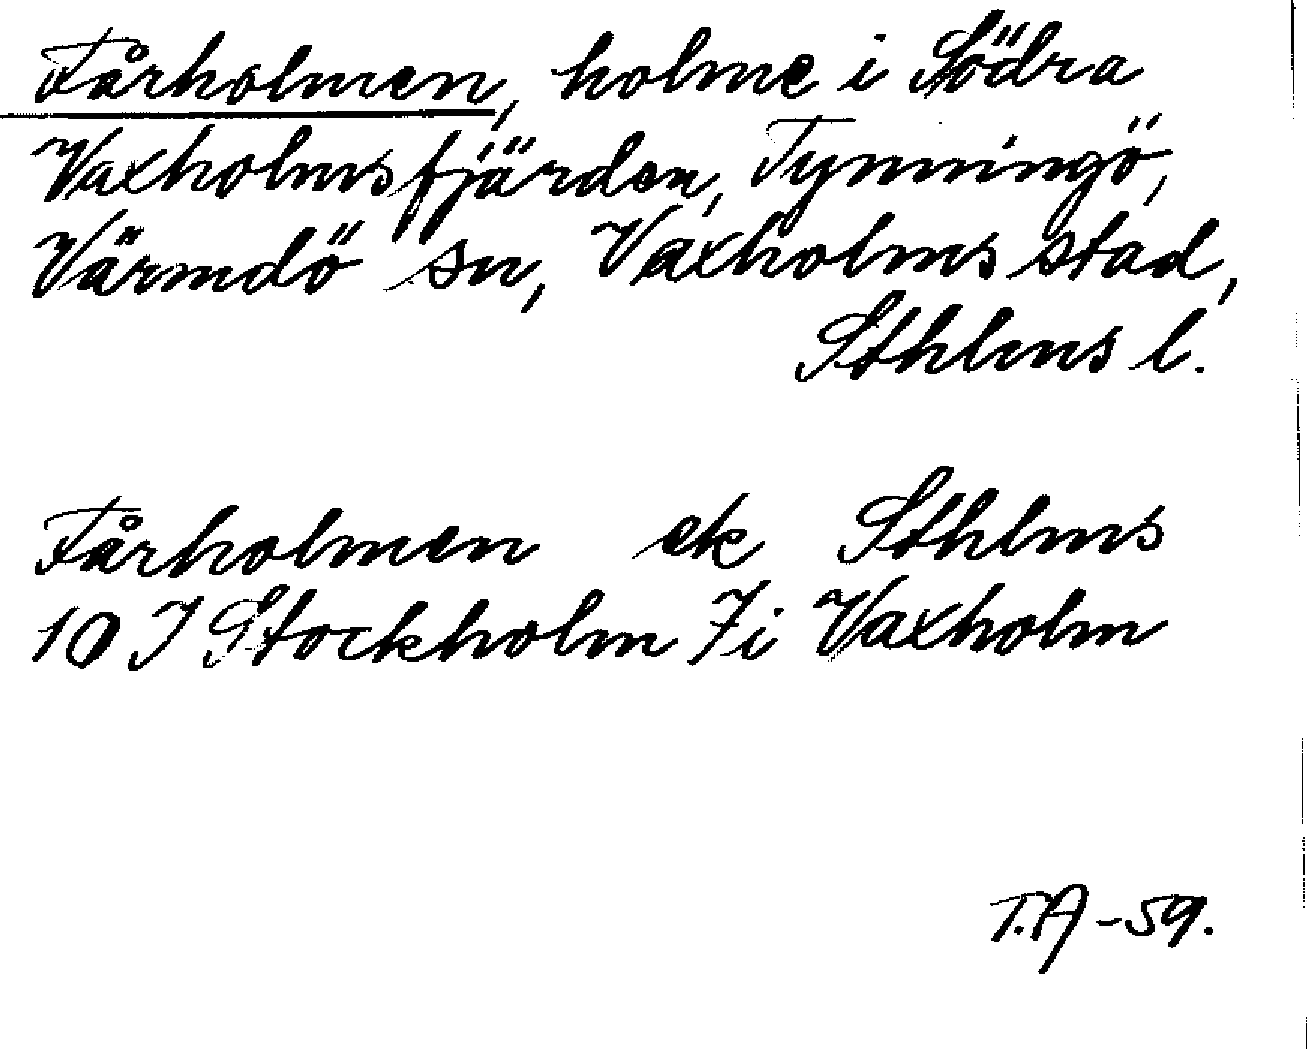 Fårholmen, holme i Södra
Vaxholmsfjärden, Tynningö,
Värmdö sn, Vaxholms stad,
Sthlms l.
Fårholmen ek Sthlms
10 I Stockholm 7i Vaxholm
T.A -59.